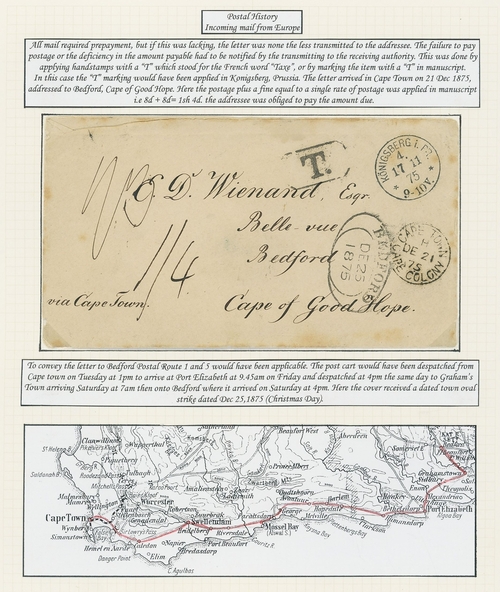 Postal History
Incoming mail from Europe
All mail required prepayment, but if this was lacking, the letter was none the less transmitted to the addressee. The failure to pay
postage or the deficiency in the amount payable had to be notified by the transmitting to the receiving authority. This was done by
applying handstamps with a "T" which stood for the French word "Taxe", or by marking the item with a "T" in manuscript.
In this case the "T" marking would have been applied in Konigsberg, Prussia. The letter arrived in Cape Town on 21 Dec 1875,
addressed to Bedford, Cape of Good Hope. Here the postage plus a fine equal to a single rate of postage was applied in manuscript
i.e 8d + 8d= 1sh 4d. the addressee was obliged to pay the amount due.
T.
KÖNIGSBERG I. PR.
17 11
75
9-10V.
E. D. Wienand, Esqr.
Belle-vue
Bedford
1/4
BEDFORD
DE 25
1875
CAPE TOWN
DE 21
75
CAPE COLONY
via Cape Town.
Cape of Good Hope.
To convey the letter to Bedford Postal Route 1 and 5 would have been applicable. The post cart would have been despatched from
Cape town on Tuesday at 1pm to arrive at Port Elizabeth at 9.45am on Friday and despatched at 4pm the same day to Graham's
Town arriving Saturday at 7am then onto Bedford where it arrived on Saturday at 4pm. Here the cover received a dated town oval
strike dated Dec 25,1875 (Christmas Day).
Clanwilliam
Beaufort West
Aberdeen
Somerset E.
St. Helena B.
Piquetberg
Saldanha B.
Tulbagh
Prince Albert
Grahamstown
Malmesbury
Wellington
Worcester
Ladismith
Oudtshoorn
Cape Town
Stellenbosch
Robertson
Swellendam
George
Port Elizabeth
Algoa Bay
Wynberg
Simonstown
Caledon
Heidelberg
Riversdale
Mossel Bay
(Aliwal S.)
Humansdorp
Napier
Port Beaufort
Bredasdorp
Danger Point
Elim
C. Agulhas